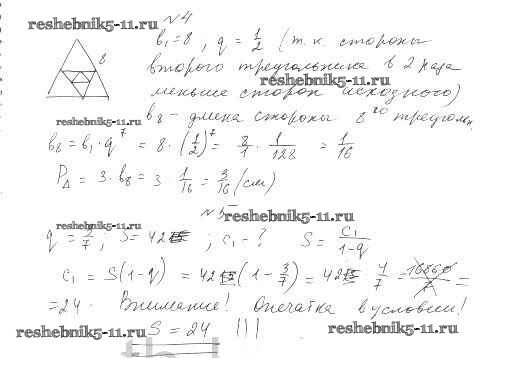 reshebnik5-11.ru №4
8 b₁=8, q = 1/2 (т.к. стороны
второго треугольника в 2 раза
reshebnik5-11.ru
меньше сторон исходного)
reshebnik5-11.ru b₈ – длина стороны 8го треугольн
b₈ = b₁·q⁷ = 8·(1/2)⁷ = 8/1 · 1/128 = 1/16
P△ = 3·b₈ = 3 · 1/16 = 3/16 (см)
№5
reshebnik5-11.ru reshebnik5-11.ru
q = 3/7, S=42 ; c₁ – ? S = c₁/(1-q)
c₁ = S(1-q) = 42(1 - 3/7) = 42 · 4/7 =
=24. Внимание! Опечатка в условии!
reshebnik5-11.ru S = 24 !!! reshebnik5-11.ru